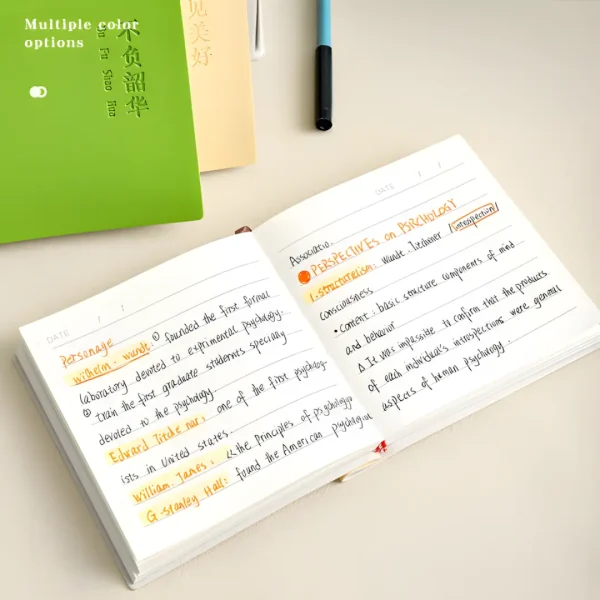 Multiple color
options
不负韶华
Bu Fu Shao Hua
见美好
DATE / :
Personage
wilhelm. wundt: ① founded the first formal
laboratory devoted to exprimental psychology.
② train the first graduate students specially
devoted to the psychology.
Edward Titchener: one of the first psycholog-
ists in United states.
William. James: 《the Principles of psychology
G. stanley Hall: found the American psychological
DATE / /
Associatio.
PERSPECTIVES on PSYCHOLOGY
1. structuralism: Wundt. Titchener /introspection/
consciousness
• Content: basic structure components of mind
and behavior
△ It was impassible to confirm that the products
of each individual's introspections were general
aspects of human psychology.